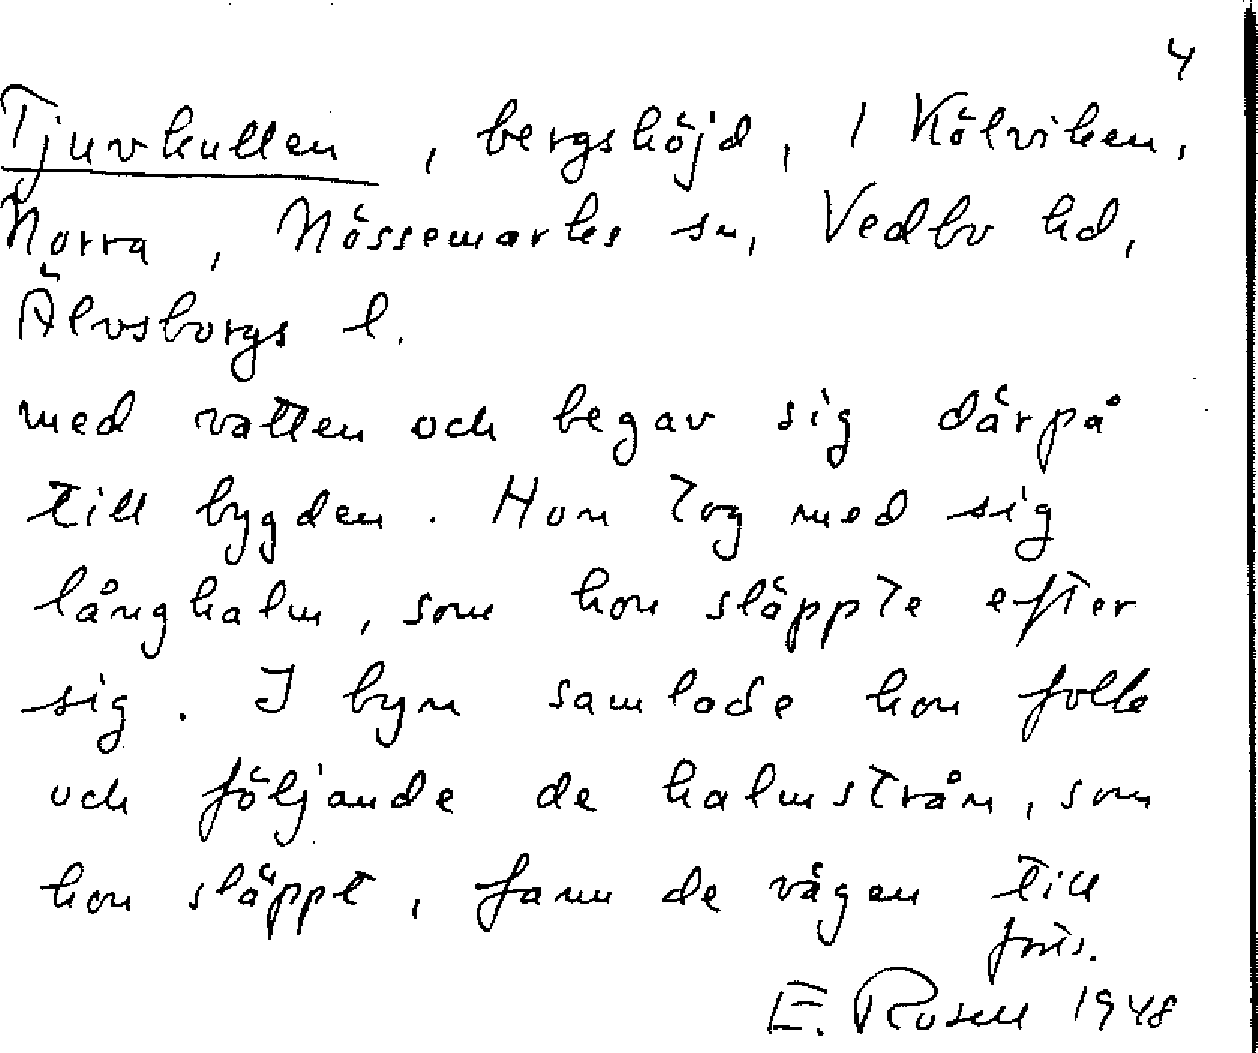 4
Tjuvkullen, bergshöjd, i Kölviken,
Norra, Nössemarks sn, Vedbo hd,
Älvsborgs l.
med vatten och begav sig därpå
till bygden. Hon tog med sig
långhalm, som hon släppte efter
sig. I byn samlade hon folk
och följande de halmstrån, som
hon släppt, fann de vägen till
forts.
E. Rosell 1948